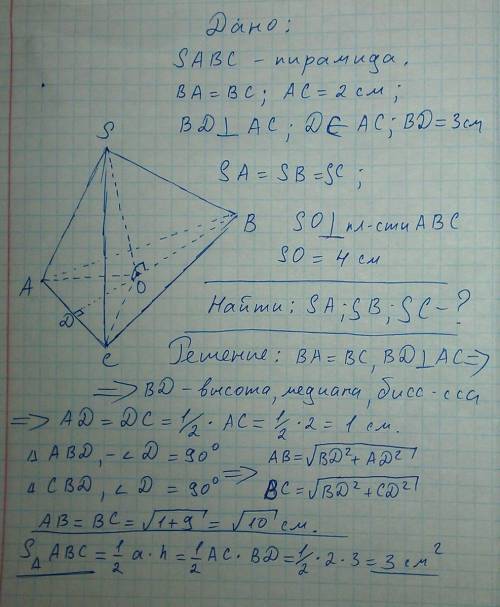 Дано:
SABC – пирамида.
BA = BC; AC = 2 см;
BD ⊥ AC; D ∈ AC; BD = 3 см
SA = SB = SC;
SO ⊥ пл-сти ABC
SO = 4 см
Найти: SA; SB; SC – ?
S
B
A
O
D
C
Решение: BA = BC, BD ⊥ AC =>
=> BD – высота, медиана, бисс-сса
=> AD = DC = 1/2 · AC = 1/2 · 2 = 1 см.
Δ ABD, – ∠ D = 90° => AB = √(BD² + AD²)
Δ CBD, ∠ D = 90° BC = √(BD² + CD²)
AB = BC = √(1+9) = √10 см.
S Δ ABC = 1/2 a · h = 1/2 AC · BD = 1/2 · 2 · 3 = 3 см²